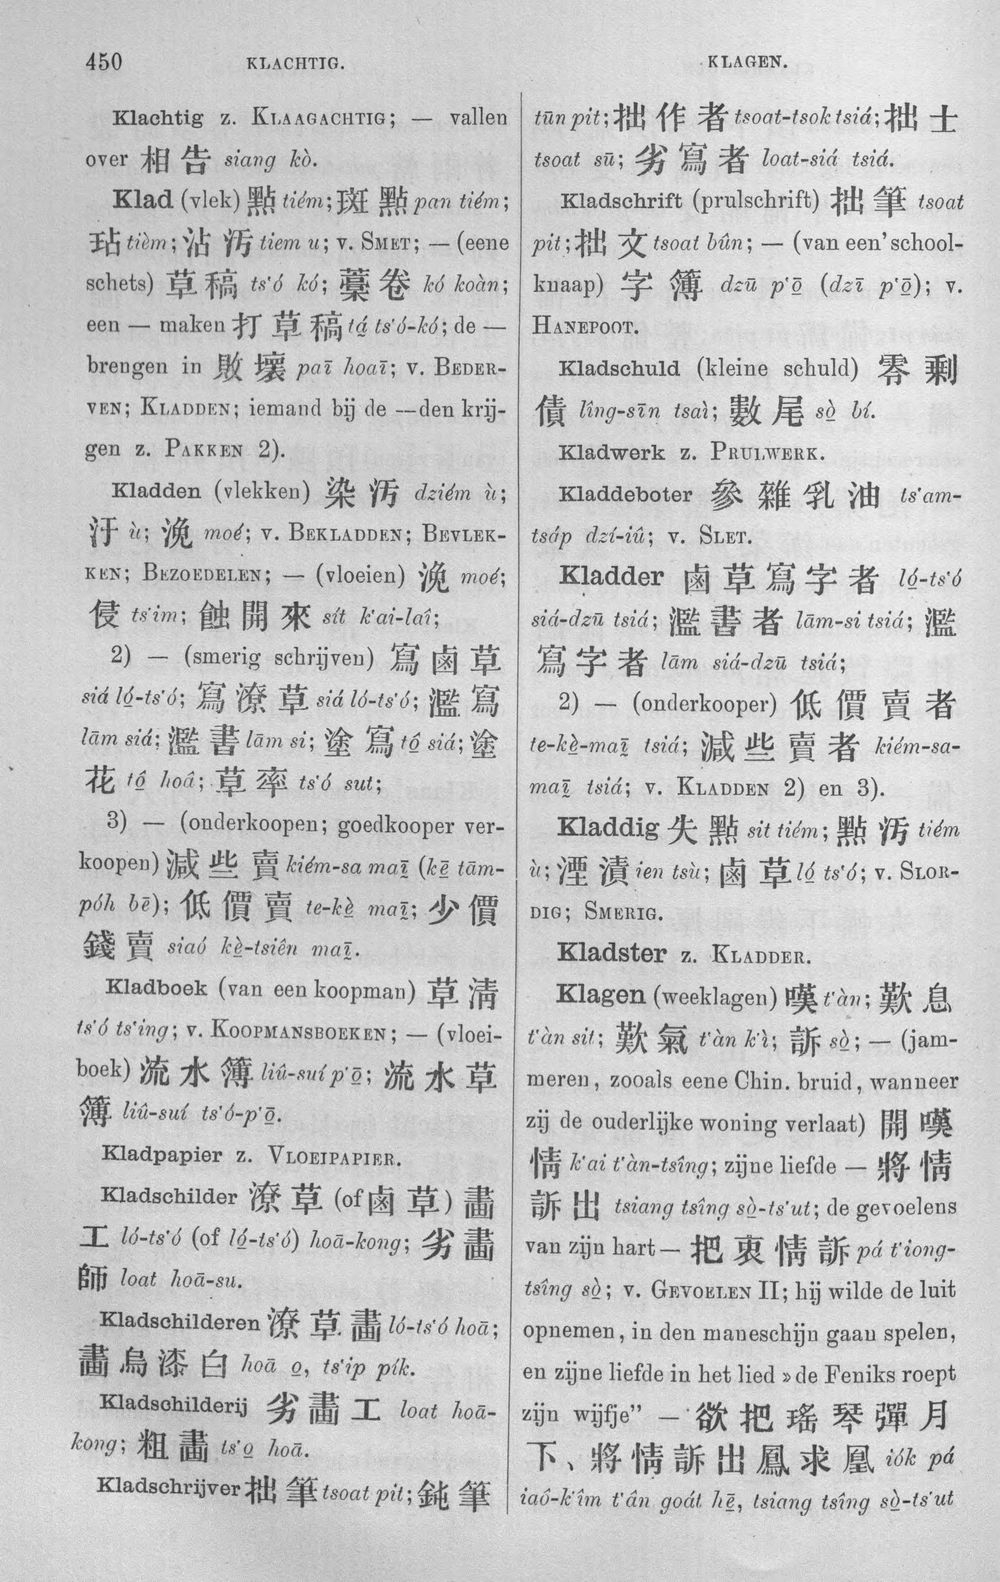 450
KLACHTIG.
KLAGEN.
Klachtig z. KLAAGACHTIG; — vallen
over 相告 siang kò.
Klad (vlek) 點 tiém; 斑點 pan tiém;
玷 tièm; 沾汚 tiem u; v. SMET; — (eene
schets) 草稿 ts'ó kó; 藁卷 kó koàn;
een — maken 打草稿 tá ts'ó-kó; de —
brengen in 敗壞 paī hoaī; v. BEDER-
VEN; KLADDEN; iemand bij de —den krij-
gen z. PAKKEN 2).
Kladden (vlekken) 染汚 dziém ù;
汙 ù; 浼 moé; v. BEKLADDEN; BEVLEK-
KEN; BEZOEDELEN; — (vloeien) 浼 moé;
侵 ts'im; 蝕開來 sít k'ai-laî;
2) — (smerig schrijven) 寫鹵草
siá ló̱-ts'ó; 寫潦草 siá ló-ts'ó; 濫寫
lām siá; 濫書 lām si; 塗寫 tô̱ siá; 塗
花 tô̱ hoâ; 草率 ts'ó sut;
3) — (onderkoopen; goedkooper ver-
koopen) 減些賣 kiém-sa maī̱ (kē̱ tām-
póh bē); 低價賣 te-kè̱ maī̱; 少價
錢賣 siaó kè̱-tsiên maī̱.
Kladboek (van een koopman) 草清
ts'ó ts'ing; v. KOOPMANSBOEKEN; — (vloei-
boek) 流水簿 liû-suí p'ō̱; 流水草
簿 liû-suí ts'ó-p'ō̱.
Kladpapier z. VLOEIPAPIER.
Kladschilder 潦草 (of 鹵草) 畵
工 ló-ts'ó (of ló̱-ts'ó) hoā-kong; 劣畵
師 loat hoā-su.
Kladschilderen 潦草畵 ló-ts'ó hoā;
畵烏漆白 hoā o̱, ts'ip pík.
Kladschilderij 劣畵工 loat hoā-
kong; 粗畵 ts'o̱ hoā.
Kladschrijver 拙筆 tsoat pit; 鈍筆
tūn pit; 拙作者 tsoat-tsok tsiá; 拙士
tsoat sū; 劣寫者 loat-siá tsiá.
Kladschrift (prulschrift) 拙筆 tsoat
pit; 拙文 tsoat bûn; — (van een' school-
knaap) 字簿 dzū p'ō̱ (dzī p'ō̱); v.
HANEPOOT.
Kladschuld (kleine schuld) 零剩
債 lîng-sīn tsaì; 數尾 sò̱ bí.
Kladwerk z. PRULWERK.
Kladdeboter 參雜乳油 ts'am-
tsáp dzí-iû; v. SLET.
Kladder 鹵草寫字者 ló̱-ts'ó
siá-dzū tsiá; 濫書者 lām-si tsiá; 濫
寫字者 lām siá-dzū tsiá;
2) — (onderkooper) 低價賣者
te-kè̱-maī̱ tsiá; 減些賣者 kiém-sa-
maī̱ tsiá; v. KLADDEN 2) en 3).
Kladdig 失點 sit tiém; 點汚 tiém
ù; 湮漬 ien tsù; 鹵草 ló̱ ts'ó; v. SLOR-
DIG; SMERIG.
Kladster z. KLADDER.
Klagen (weeklagen) 嘆 t'àn; 歎息
t'àn sit; 歎氣 t'àn k'ì; 訴 sò̱; — (jam-
meren, zooals eene Chin. bruid, wanneer
zij de ouderlijke woning verlaat) 開嘆
情 k'ai t'àn-tsîng; zijne liefde — 將情
訴出 tsiang tsîng sò̱-ts'ut; de gevoelens
van zijn hart — 把衷情訴 pá t'iong-
tsîng sò̱; v. GEVOELEN II; hij wilde de luit
opnemen, in den maneschijn gaan spelen,
en zijne liefde in het lied »de Feniks roept
zijn wijfje" — 欲把瑤琴彈月
下、將情訴出鳳求凰 iók pá
iaô-k'îm t'ân goát hē̱, tsiang tsîng sò̱-ts'ut